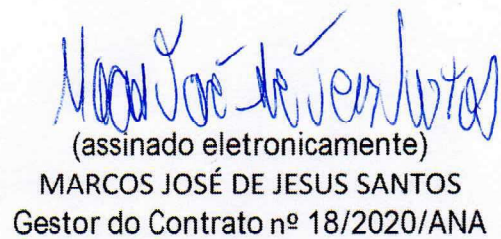 Marcos José de Jesus Santos
(assinado eletronicamente)
MARCOS JOSÉ DE JESUS SANTOS
Gestor do Contrato nº 18/2020/ANA